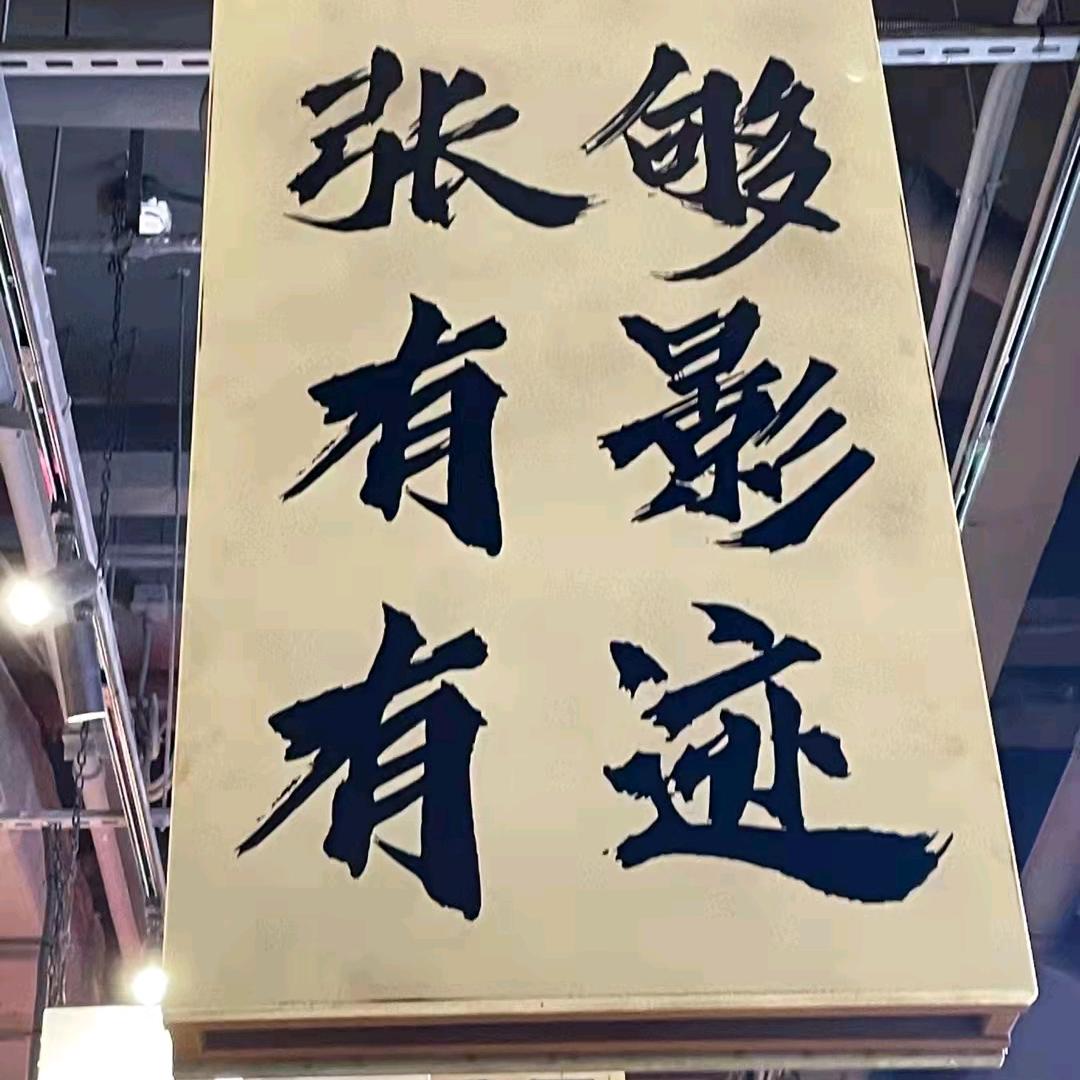 张够
有影
有迹